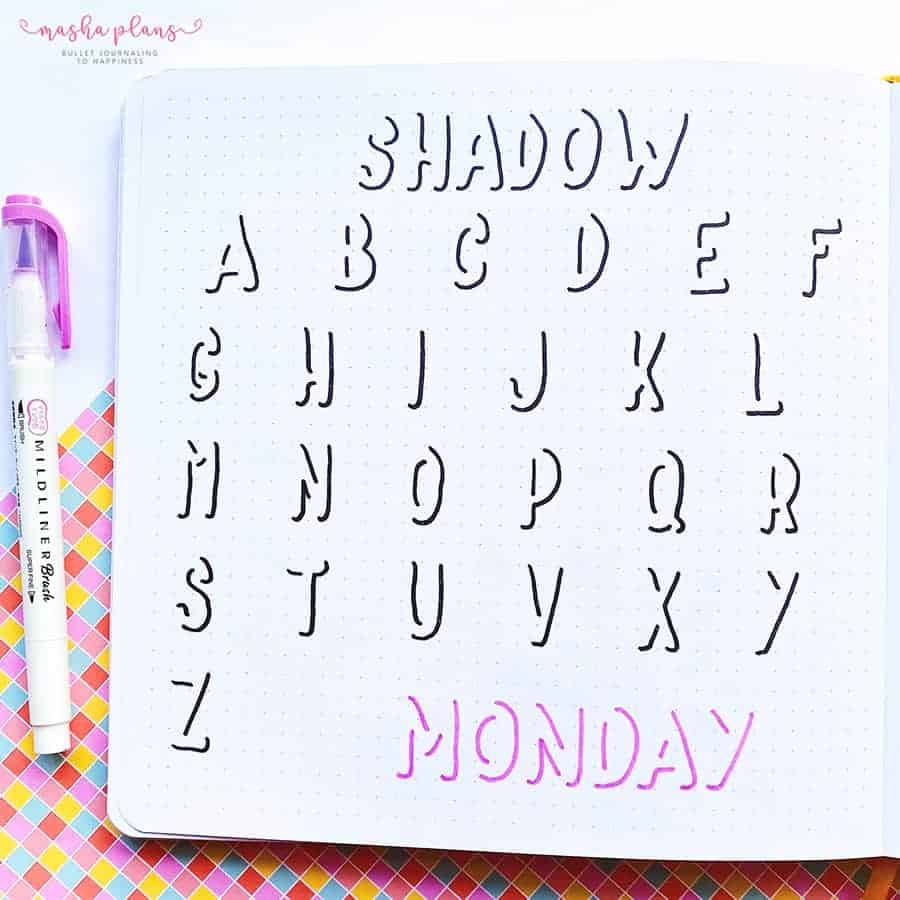 masha plans
BULLET JOURNALING
TO HAPPINESS
SHADOW
A B C D E F
G H I J K L
M N O P Q R
S T U V X Y
Z
MONDAY
MILDLINER Brush
BRUSH
SUPER FINE